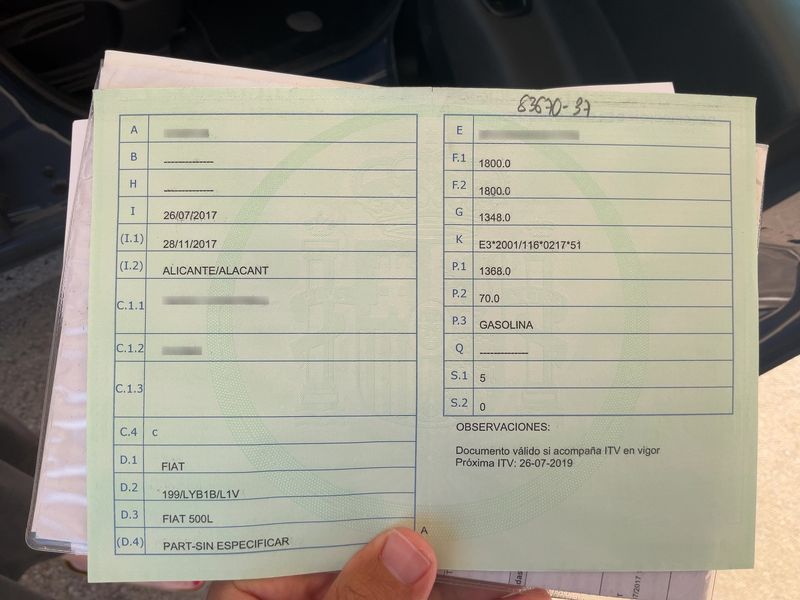 83670-37
A
B -------------
H -------------
I 26/07/2017
(I.1) 28/11/2017
(I.2) ALICANTE/ALACANT
C.1.1
C.1.2
C.1.3
C.4 c
D.1 FIAT
D.2 199/LYB1B/L1V
D.3 FIAT 500L
(D.4) PART-SIN ESPECIFICAR
E
F.1 1800.0
F.2 1800.0
G 1348.0
K E3*2001/116*0217*51
P.1 1368.0
P.2 70.0
P.3 GASOLINA
Q -------------
S.1 5
S.2 0
OBSERVACIONES:
Documento válido si acompaña ITV en vigor
Próxima ITV: 26-07-2019
A